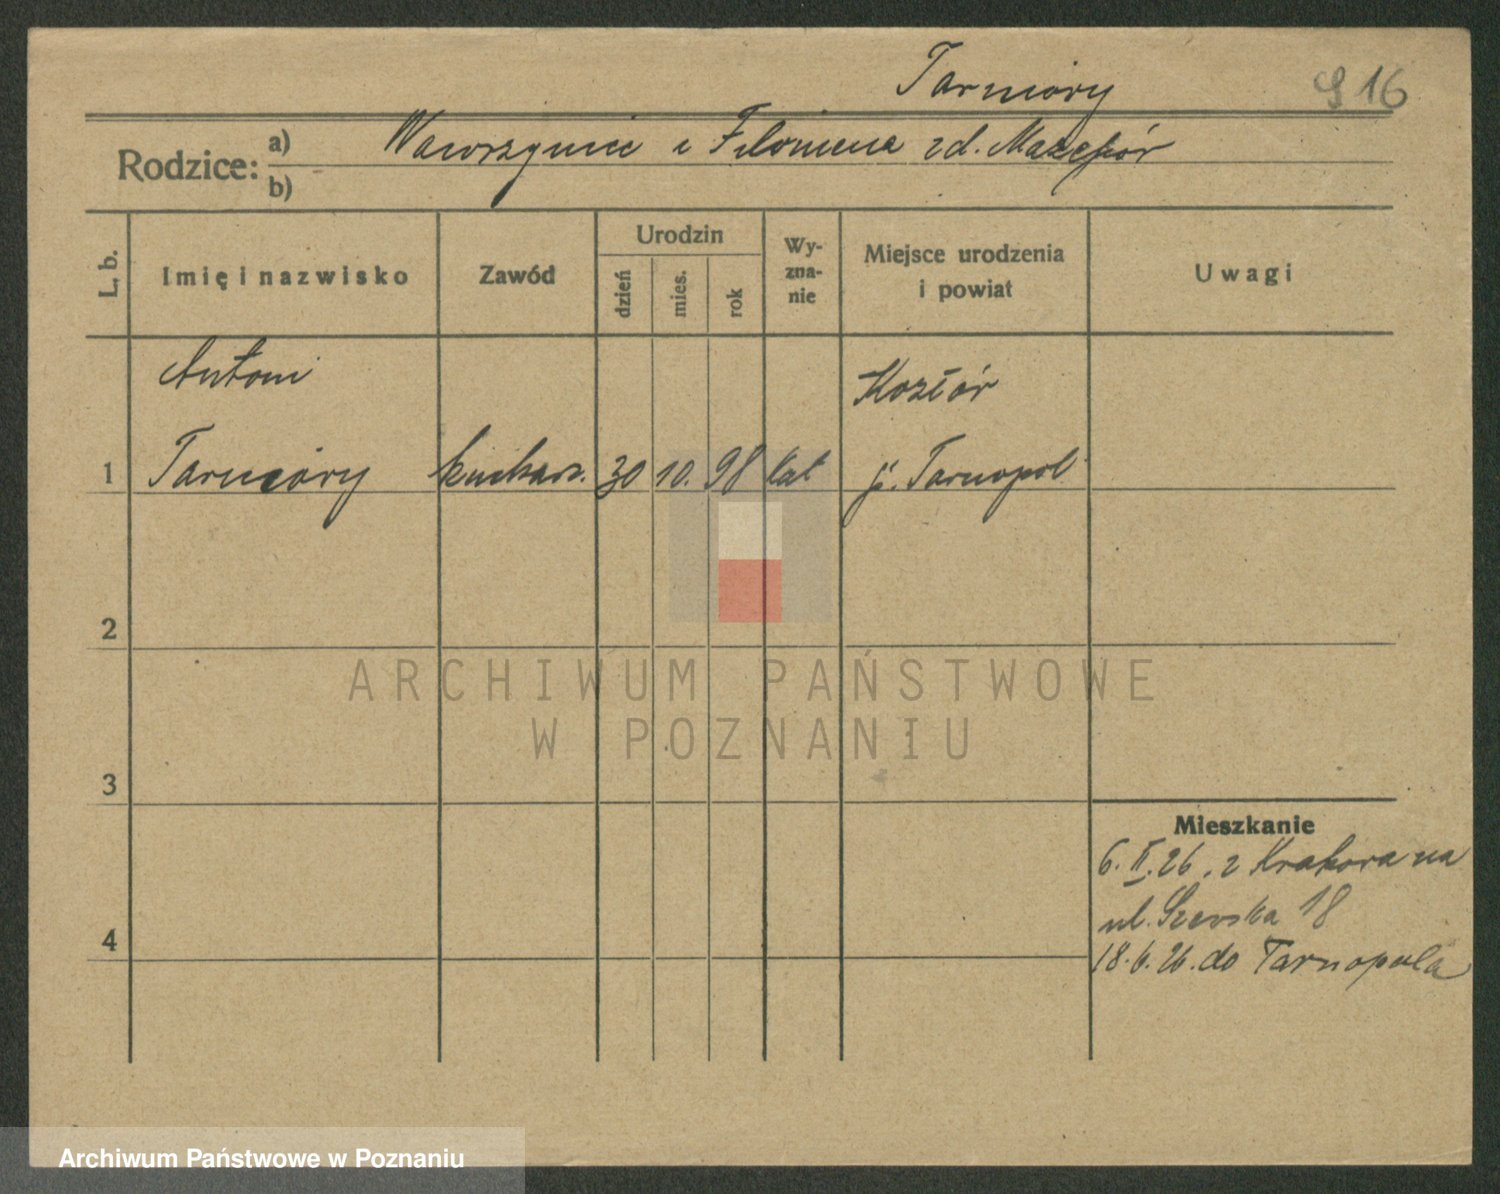 Tarnióry
916
Rodzice: a) Wawrzyniec i Filomena zd. Mazepór
b)
L. b.
Imię i nazwisko
Zawód
Urodzin
dzień
mies.
rok
Wy-
zna-
nie
Miejsce urodzenia
i powiat
Uwagi
Antoni
Kozłór
1 Tarnióry kucharz. 30 10. 98 kat p. Tarnopol
2
ARCHIWUM PAŃSTWOWE
W POZNANIU
3
Mieszkanie
6. II. 26. z Krakowa na
ul. Szewska 18
4
18. 6. 26. do Tarnopola
Archiwum Państwowe w Poznaniu